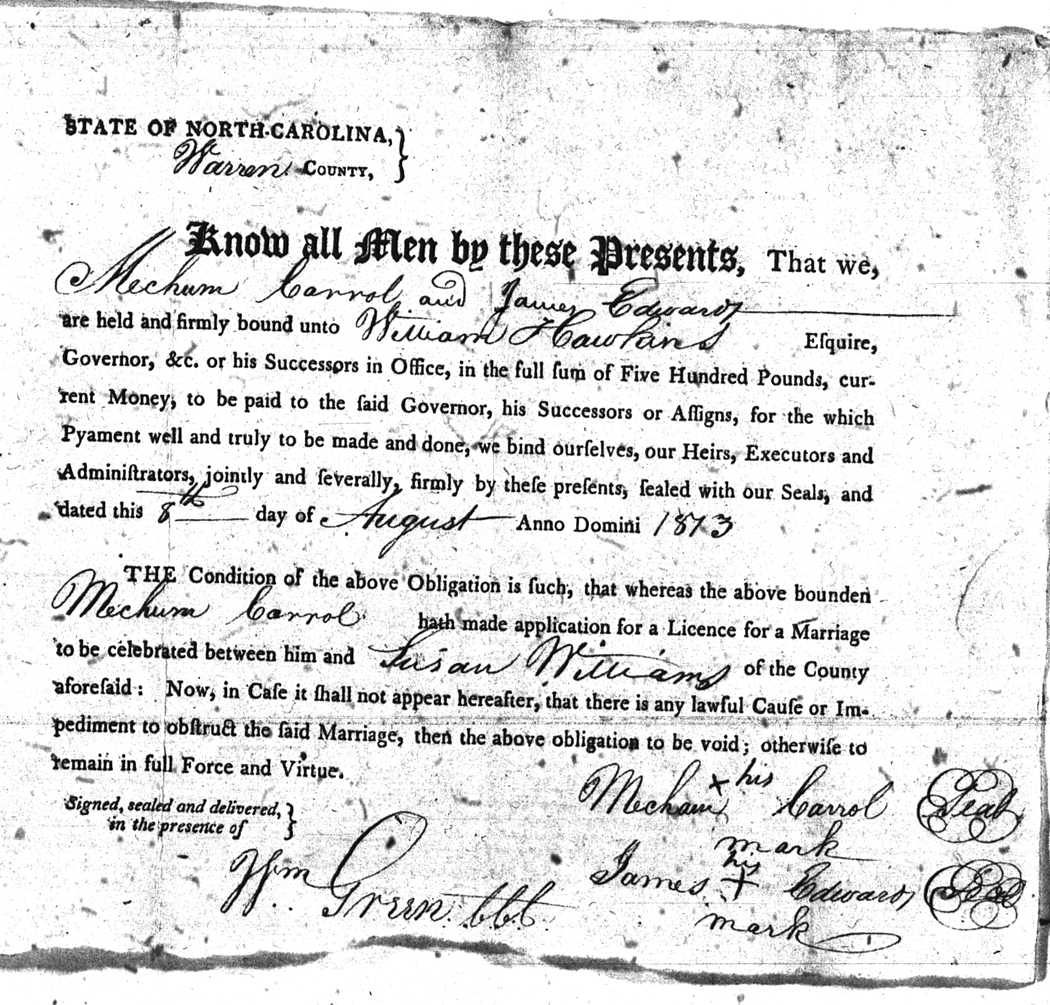 STATE OF NORTH-CAROLINA,
Warren COUNTY,
Know all Men by these Presents, That we,
Mechum Carrol and James Edwards
are held and firmly bound unto William Hawkins Eſquire,
Governor, &c. or his Successors in Office, in the full ſum of Five Hundred Pounds, cur-
rent Money, to be paid to the ſaid Governor, his Successors or Aſſigns, for the which
Pyament well and truly to be made and done, we bind ourſelves, our Heirs, Executors and
Adminiſtrators, jointly and ſeverally, firmly by theſe preſents, ſealed with our Seals, and
dated this 8th day of August Anno Domini 1813
THE Condition of the above Obligation is ſuch, that whereas the above bounden
Mechum Carrol hath made application for a Licence for a Marriage
to be celebrated between him and Susan Williams of the County
aforeſaid: Now, in Caſe it ſhall not appear hereafter, that there is any lawful Cauſe or Im-
pediment to obſtruct the ſaid Marriage, then the above obligation to be void; otherwiſe to
remain in full Force and Virtue.
Signed, sealed and delivered,
in the presence of
Mecham his x Carrol Seal
mark
Wm Green
James his + Edwards Seal
mark